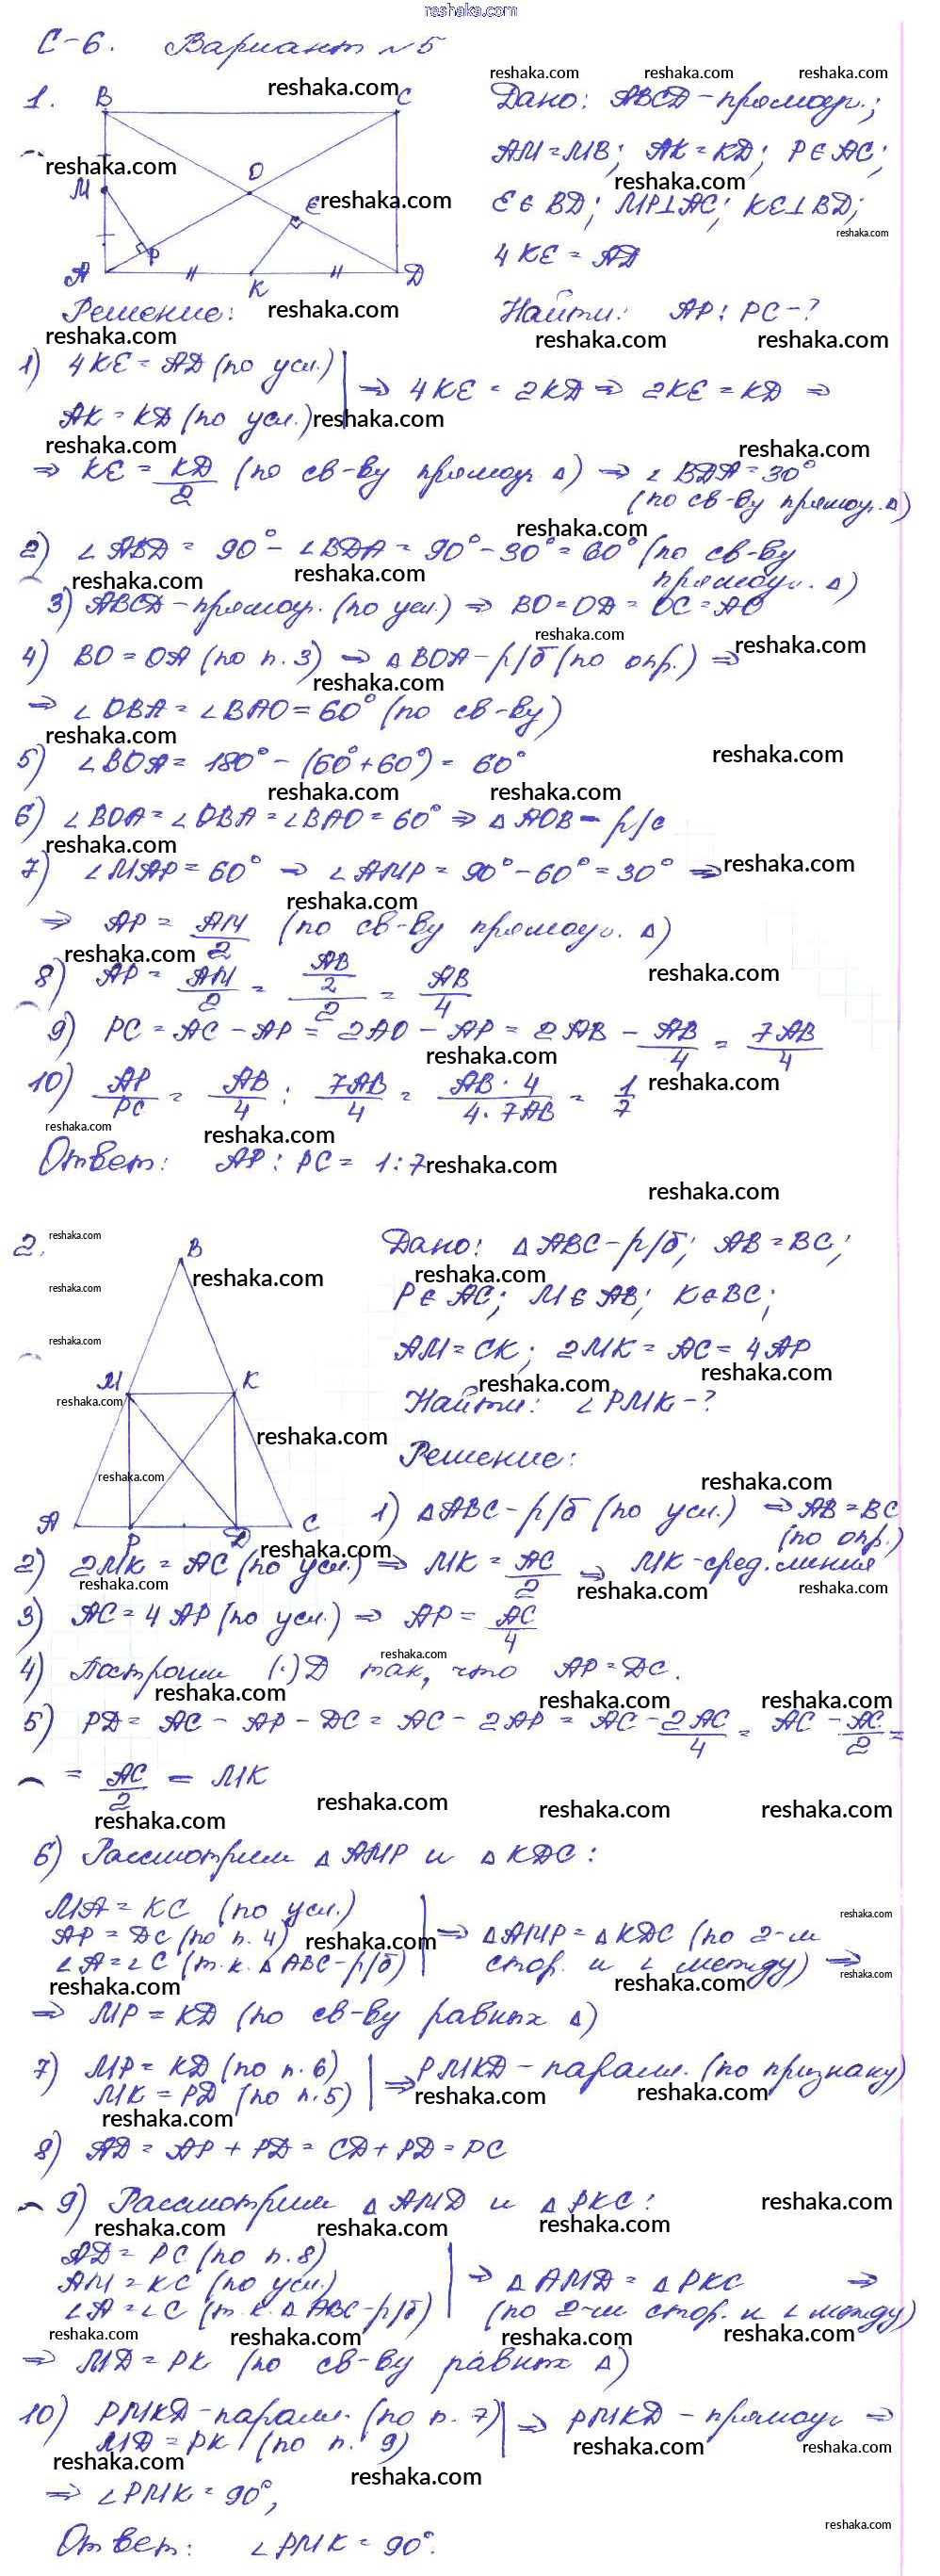 reshaka.com
С-6. Вариант №5
1. B C
Дано: ABCD – прямоуг.;
AM = MB; AK = KD; P ∈ AC;
E ∈ BD; MP ⊥ AC; KE ⊥ BD;
4KE = AD
M O E P A K D
Решение: Найти: AP : PC – ?
1) 4KE = AD (по усл.)
AK = KD (по усл.)
⇒ 4KE = 2KD ⇒ 2KE = KD ⇒
⇒ KE = KD/2 (по св-ву прямоуг. Δ) ⇒ ∠BDA = 30°
(по св-ву прямоуг. Δ)
2) ∠ABD = 90° – ∠BDA = 90° – 30° = 60° (по св-ву
прямоуг. Δ)
3) ABCD – прямоуг. (по усл.) ⇒ BO = OD = OC = AO
4) BO = OA (по п. 3) ⇒ Δ BOA – р/б (по опр.) ⇒
⇒ ∠OBA = ∠BAO = 60° (по св-ву)
5) ∠BOA = 180° – (60° + 60°) = 60°
6) ∠BOA = ∠OBA = ∠BAO = 60° ⇒ Δ AOB – р/с
7) ∠MAP = 60° ⇒ ∠AMP = 90° – 60° = 30° ⇒
⇒ AP = AM/2 (по св-ву прямоуг. Δ)
8) AP = AM/2 = (AB/2)/2 = AB/4
9) PC = AC – AP = 2AO – AP = 2AB – AB/4 = 7AB/4
10) AP/PC = AB/4 : 7AB/4 = AB · 4/4 · 7AB = 1/7
Ответ: AP : PC = 1 : 7
2. B
Дано: Δ ABC – р/б; AB = BC;
P ∈ AC; M ∈ AB; K ∈ BC;
AM = CK; 2MK = AC = 4AP
M K
Найти: ∠PMK – ?
Решение:
A P D C
1) Δ ABC – р/б (по усл.) ⇒ AB = BC
(по опр.)
2) 2MK = AC (по усл.) ⇒ MK = AC/2 ⇒ MK – сред. линия
3) AC = 4AP (по усл.) ⇒ AP = AC/4
4) Построим (·) D так, что AP = DC.
5) PD = AC – AP – DC = AC – 2AP = AC – 2AC/4 = AC – AC/2 =
= AC/2 = MK
6) Рассмотрим Δ AMP и Δ KDC:
MA = KC (по усл.)
AP = DC (по п. 4)
∠A = ∠C (т.к. Δ ABC – р/б)
⇒ Δ AMP = Δ KDC (по 2-м
стор. и ∠ между) ⇒
⇒ MP = KD (по св-ву равных Δ)
7) MP = KD (по п. 6)
MK = PD (по п. 5)
⇒ PMKD – паралл. (по признаку)
8) AD = AP + PD = CD + PD = PC
9) Рассмотрим Δ AMD и Δ PKC:
AD = PC (по п. 8)
AM = KC (по усл)
∠A = ∠C (т.к. Δ ABC – р/б)
⇒ Δ AMD = Δ PKC ⇒
(по 2-м стор. и ∠ между)
⇒ MD = PK (по св-ву равных Δ)
10) PMKD – паралл. (по п. 7)
MD = PK (по п. 9)
⇒ PMKD – прямоуг ⇒
⇒ ∠PMK = 90°,
Ответ: ∠PMK = 90°.